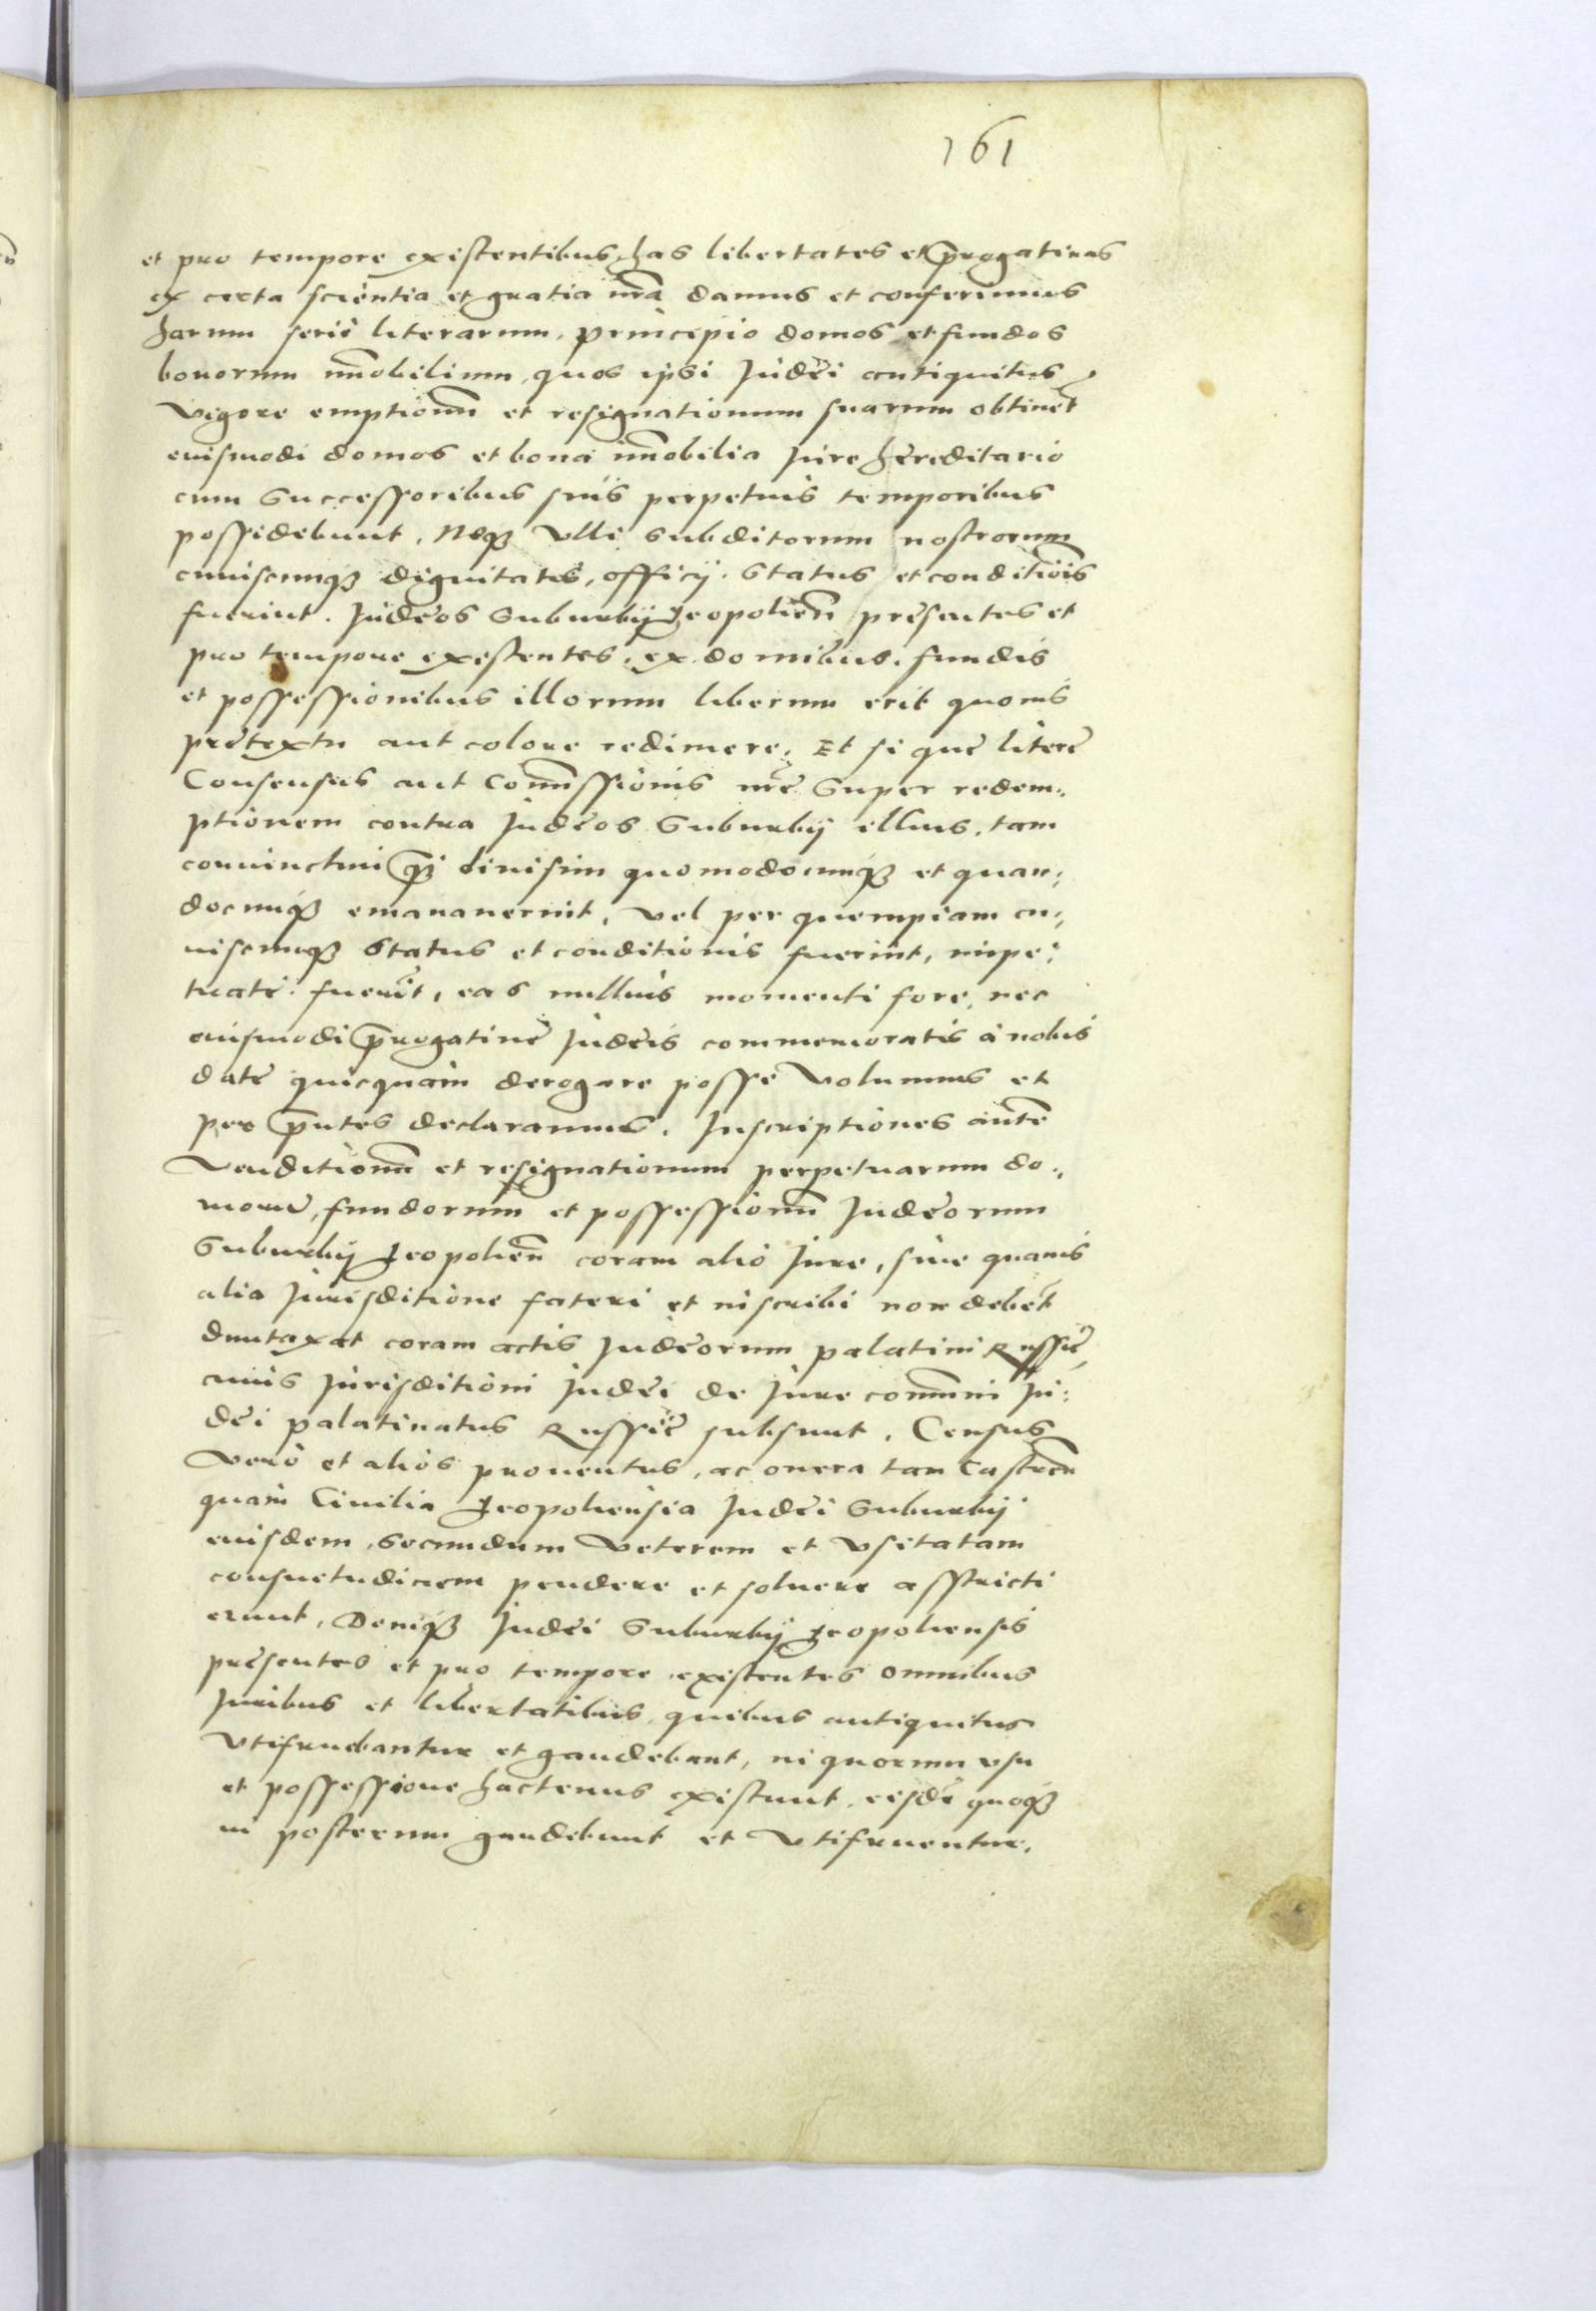 161
et pro tempore existentibus, has libertates et p̄rogatiuas
ex certa scientia et gratia nr̄a damus et conferimus
harum serie literarum, principio domos et fundos
bonorum im̄obilium, quos ipsi Judęi antiquitus,
Vigore emptionū et resignationum suarum obtinēt
euismodi domos et bona im̄obilia Jure hęreditario
cum Successoribus suis perpetuis temporibus
possidebunt, Neqз Vlli Subditorum nostrorum
cuiuscumqз dignitatis, officij, Status et conditiōis
fuerint, Judęos Suburbij Leopolieñ pręsentes et
pro tempore existentes, ex domibus, fundis
et possessionibus illorum liberum erit quouis
prętextu aut colore redimere, Et si quę literę
Consensus aut Com̄issionis nr̄ę Super redem:
ptionem contra Judęos Suburbij illius, tam
conuinctim q̄з diuisim quomodocumqз et quan:
documqз emanauerint, Vel per quempiam cu:
uiscumqз Status et conditionis fuerint, impe:
tratę fuerīt, eas nullius momenti fore, nec
euismodi p̄rogatiuę Judęis commemoratis à nobis
datę quicquam derogare posse Volumus et
per p̄ntes declaramus. Inscriptiones autē
Venditionū et resignationum perpetuarum do:
morū, fundorum et possessionū Judęorum
Suburbij Leopolieñ coram alio Jure, siue quauis
alia Jurisditione fateri et inscribi non debēt
duntaxat coram actis Judęorum palatini Russię,
cuius Jurisditioni Judęi de Jure com̄uni Ju:
dęi palatinatus Russię subsunt. Census
Vero et alios prouentus, ac onera tam Castreñ
quam Ciuilia Leopoliensia Judęi Suburbij
euisdem, Secundum Veterem et Vsitatam
consuetudinem pendere et soluere asstricti
erunt, Deniqз Judęi Suburbij Leopoliensis
pręsentes et pro tempore existentes omnibus
Juribus et libertatibus, quibus antiquitus
Vtifruebantur et gaudebant, in quorum vsu
et possessione hactenus existunt, eisdē quoqз
in posterum gaudebunt et Vtifruentur.